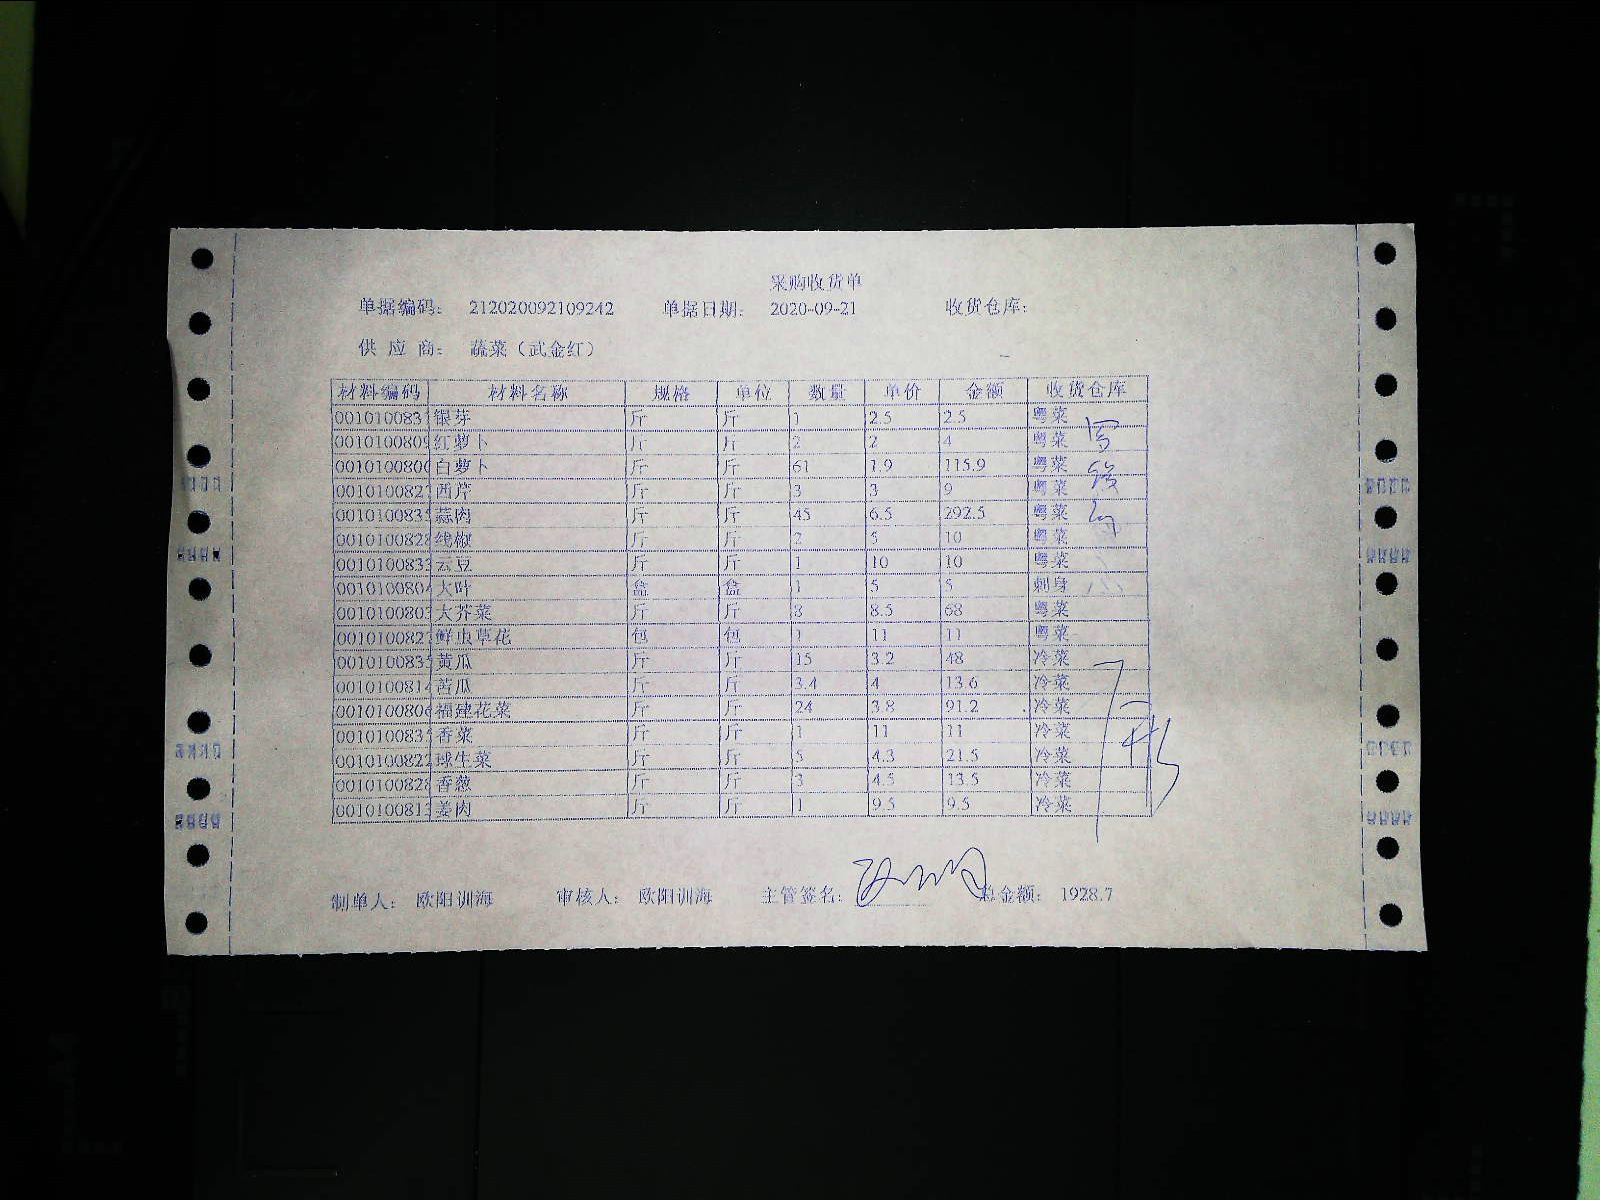 采购收货单
单据编码： 212020092109242 单据日期： 2020-09-21 收货仓库：
供 应 商： 蔬菜（武金红）
材料编码 材料名称 规格 单位 数量 单价 金额 收货仓库
001010083 银芽 斤 斤 1 2.5 2.5 粤菜
001010080 红萝卜 斤 斤 2 2 4 粤菜
001010080 白萝卜 斤 斤 61 1.9 115.9 粤菜
001010082 西芹 斤 斤 3 3 9 粤菜
001010083 蒜肉 斤 斤 45 6.5 292.5 粤菜
001010082 线椒 斤 斤 2 5 10 粤菜
001010083 云豆 斤 斤 1 10 10 粤菜
001010080 大叶 盒 盒 1 5 5 刺身
001010080 大芥菜 斤 斤 8 8.5 68 粤菜
001010082 鲜虫草花 包 包 1 11 11 粤菜
001010083 黄瓜 斤 斤 15 3.2 48 冷菜
001010081 苦瓜 斤 斤 3.4 4 13.6 冷菜
001010080 福建花菜 斤 斤 24 3.8 91.2 冷菜
001010083 香菜 斤 斤 1 11 11 冷菜
001010082 球生菜 斤 斤 5 4.3 21.5 冷菜
001010082 香葱 斤 斤 3 4.5 13.5 冷菜
001010081 姜肉 斤 斤 1 9.5 9.5 冷菜
制单人： 欧阳训海 审核人： 欧阳训海 主管签名： 总金额： 1928.7